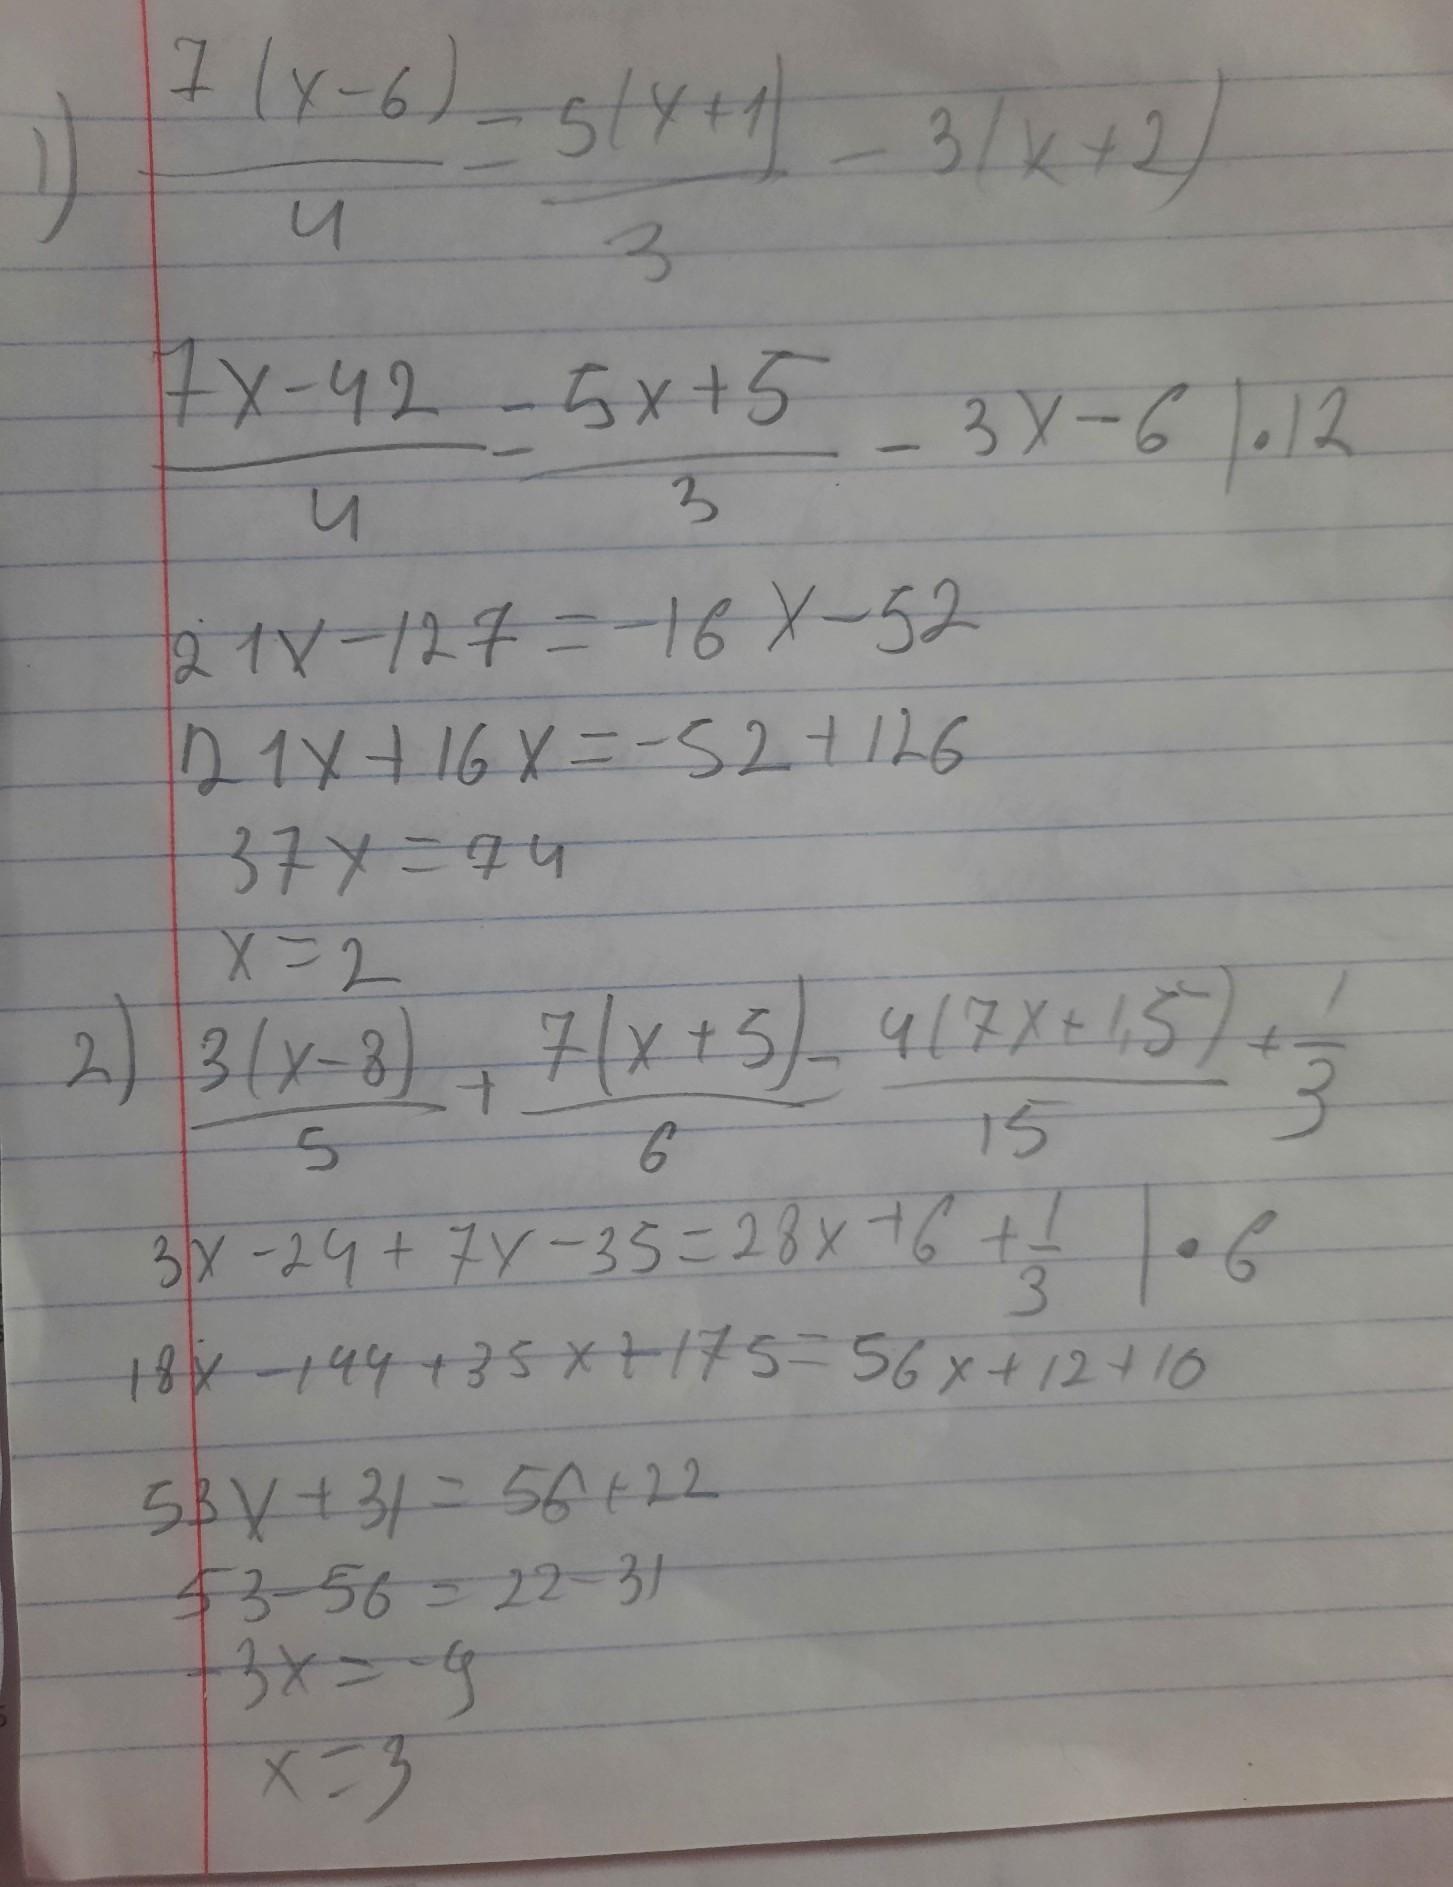 1) 7(x-6)/4 = 5(x+1)/3 - 3(x+2)
7x-42/4 = 5x+5/3 - 3x-6 |.12
21x-127=-16x-52
21x+16x=-52+126
37x=74
x=2
2) 3(x-8)/5 + 7(x+5)/6 = 4(7x+1,5)/15 + 1/3
3x-24+7x-35=28x+6+1/3 |•6
18x-144+35x+175=56x+12+10
53x+31=56+22
53-56=22-31
-3x=-9
x=3